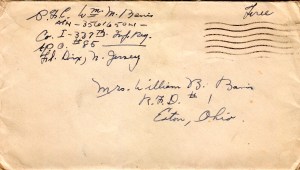 P.F.C. Wm. M. Bavis
Co. I-337th Inf. Reg.
A.P.O. #85
Ft. Dix, N. Jersey
Free
Mrs. William B. Bavis
R.F.D. # 1
Eaton, Ohio.